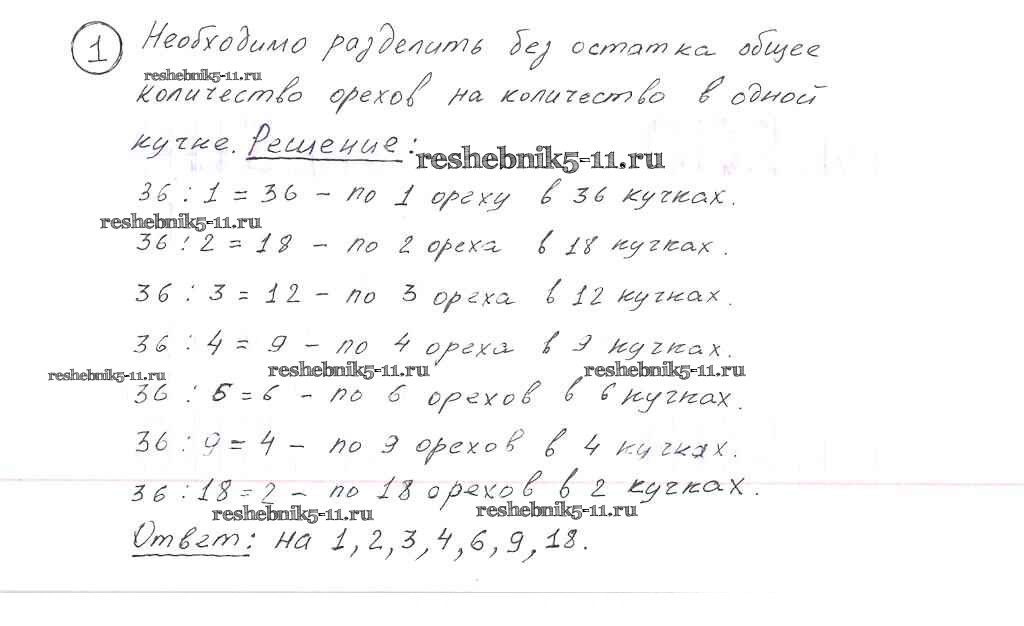 1 Необходимо разделить без остатка общее
reshebnik5-11.ru
количество орехов на количество в одной
кучке. Решение:
reshebnik5-11.ru
36 : 1 = 36 - по 1 ореху в 36 кучках.
reshebnik5-11.ru
36 : 2 = 18 - по 2 ореха в 18 кучках.
36 : 3 = 12 - по 3 ореха в 12 кучках.
36 : 4 = 9 - по 4 ореха в 9 кучках.
reshebnik5-11.ru reshebnik5-11.ru reshebnik5-11.ru
36 : 6 = 6 - по 6 орехов в 6 кучках.
36 : 9 = 4 - по 9 орехов в 4 кучках.
36 : 18 = 2 - по 18 орехов в 2 кучках.
reshebnik5-11.ru reshebnik5-11.ru
Ответ: на 1, 2, 3, 4, 6, 9, 18.